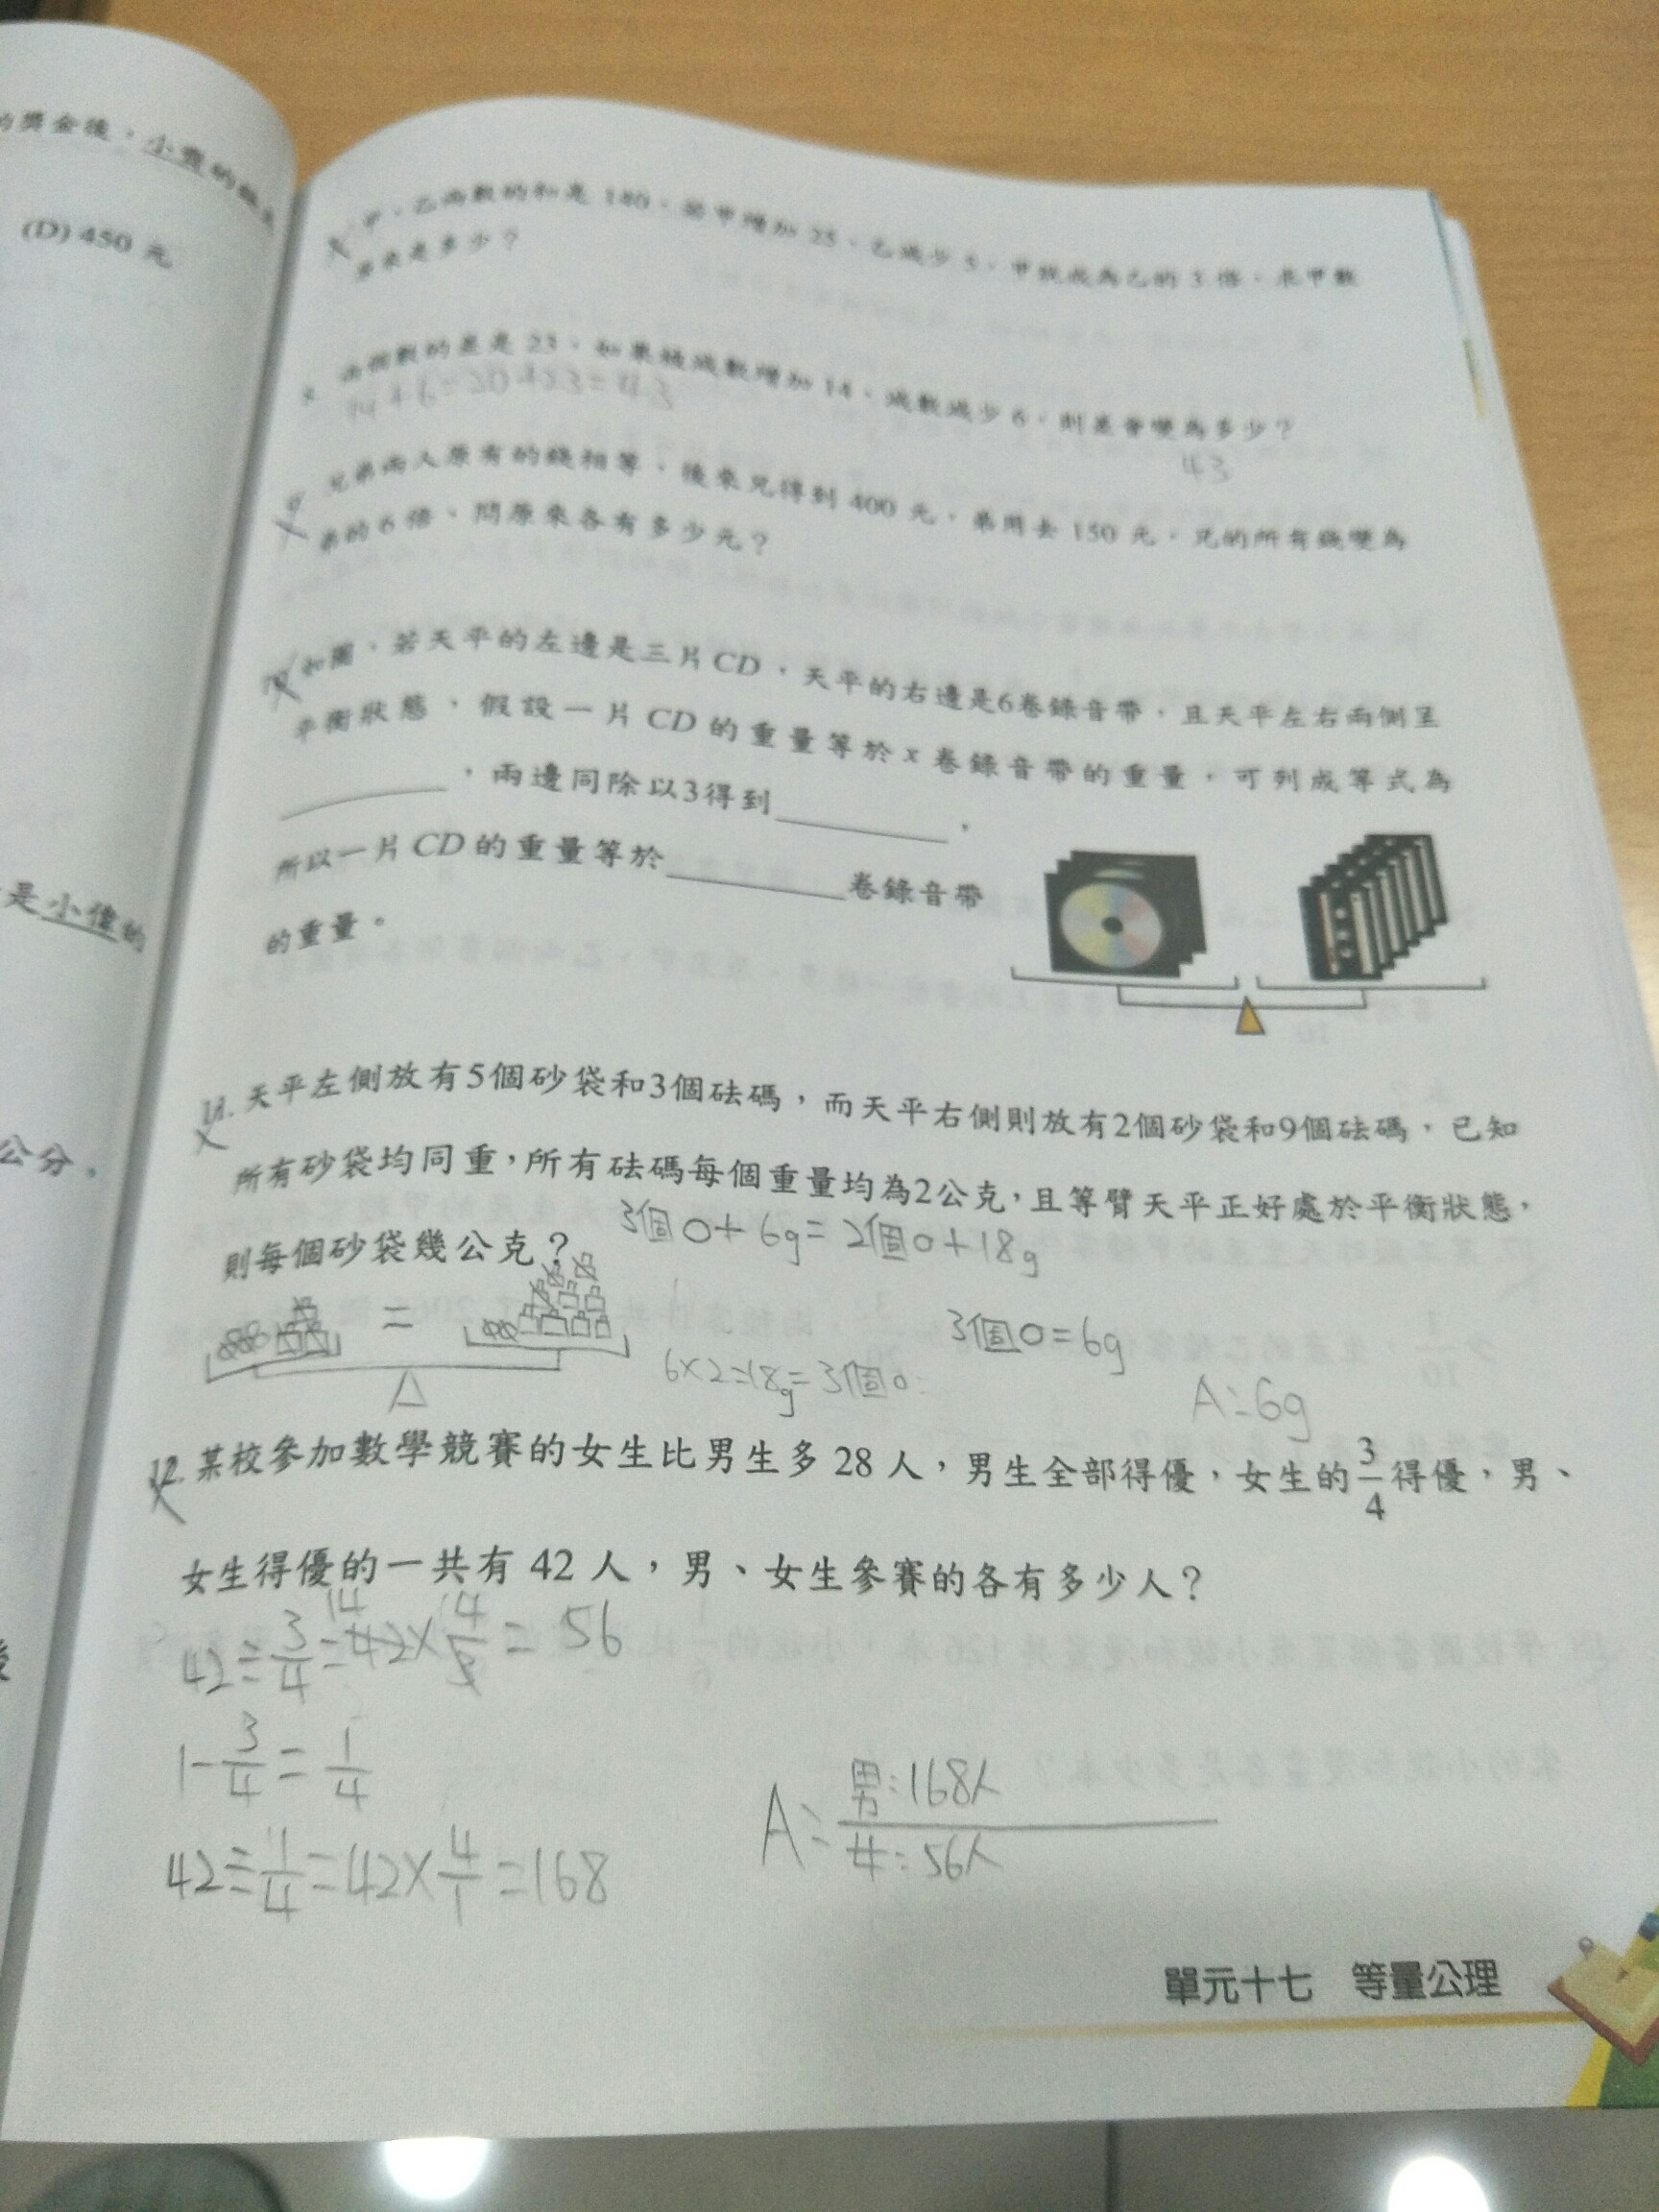 的獎金後，小寶的錢是
(D) 450 元
是小偉的
公分，
甲、乙兩數的和是 180，若甲增加 25，乙減少 5，甲就成為乙的 3 倍，求甲數
原來是多少？
8. 兩個數的差是 23，如果被減數增加 14，減數減少 6，則差會變為多少？
14+6=20+23=43
43
9. 兄弟兩人原有的錢相等，後來兄得到 400 元，弟用去 150 元，兄的所有錢變為
弟的 6 倍，問原來各有多少元？
10. 如圖，若天平的左邊是三片CD，天平的右邊是6卷錄音帶，且天平左右兩側呈
平衡狀態，假設一片CD的重量等於 x 卷錄音帶的重量，可列成等式為
，兩邊同除以3得到 ，
所以一片CD的重量等於 卷錄音帶
的重量。
11. 天平左側放有5個砂袋和3個砝碼，而天平右側則放有2個砂袋和9個砝碼，已知
所有砂袋均同重，所有砝碼每個重量均為2公克，且等臂天平正好處於平衡狀態，
則每個砂袋幾公克？
3個0+6g=2個0+18g
=
3個0=6g
6×2=18g=3個0
A:6g
12. 某校參加數學競賽的女生比男生多 28 人，男生全部得優，女生的 3/4 得優，男、
女生得優的一共有 42 人，男、女生參賽的各有多少人？
42÷3/4=42×4/3=56
14
1-3/4=1/4
42÷1/4=42×4/1=168
A:男:168人
女:56人
單元十七 等量公理